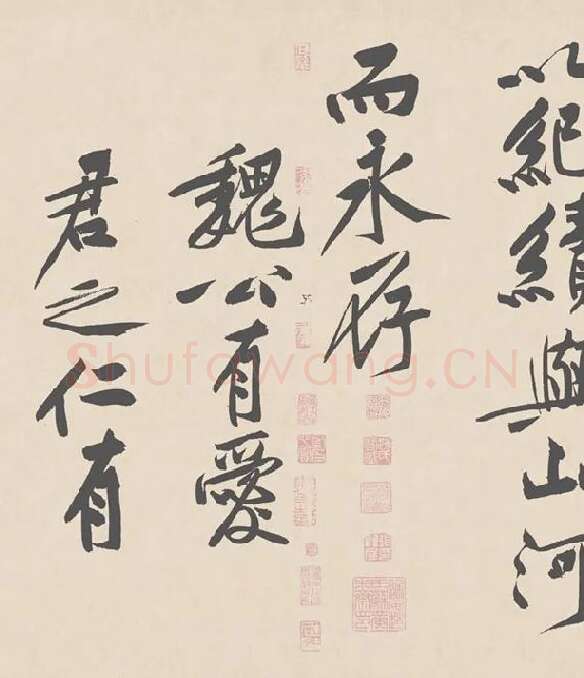 以紀績與山河
而永存
魏公有愛
君之仁有
Shufawang.CN